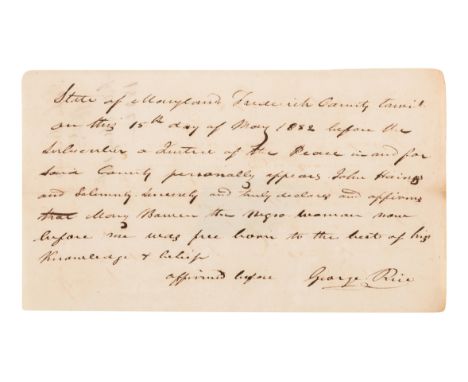 State of Maryland Frederick County towit
on this 15th day of May 1832 before the
Subscriber a Justice of the Peace in and for
Said County personally appears John Haines
and Solemnly Sincerely and truly declares and affirms
that Mary Bauren the negro woman now
before me was free born to the best of his
Knowledge & belief
affirmed before George Rice